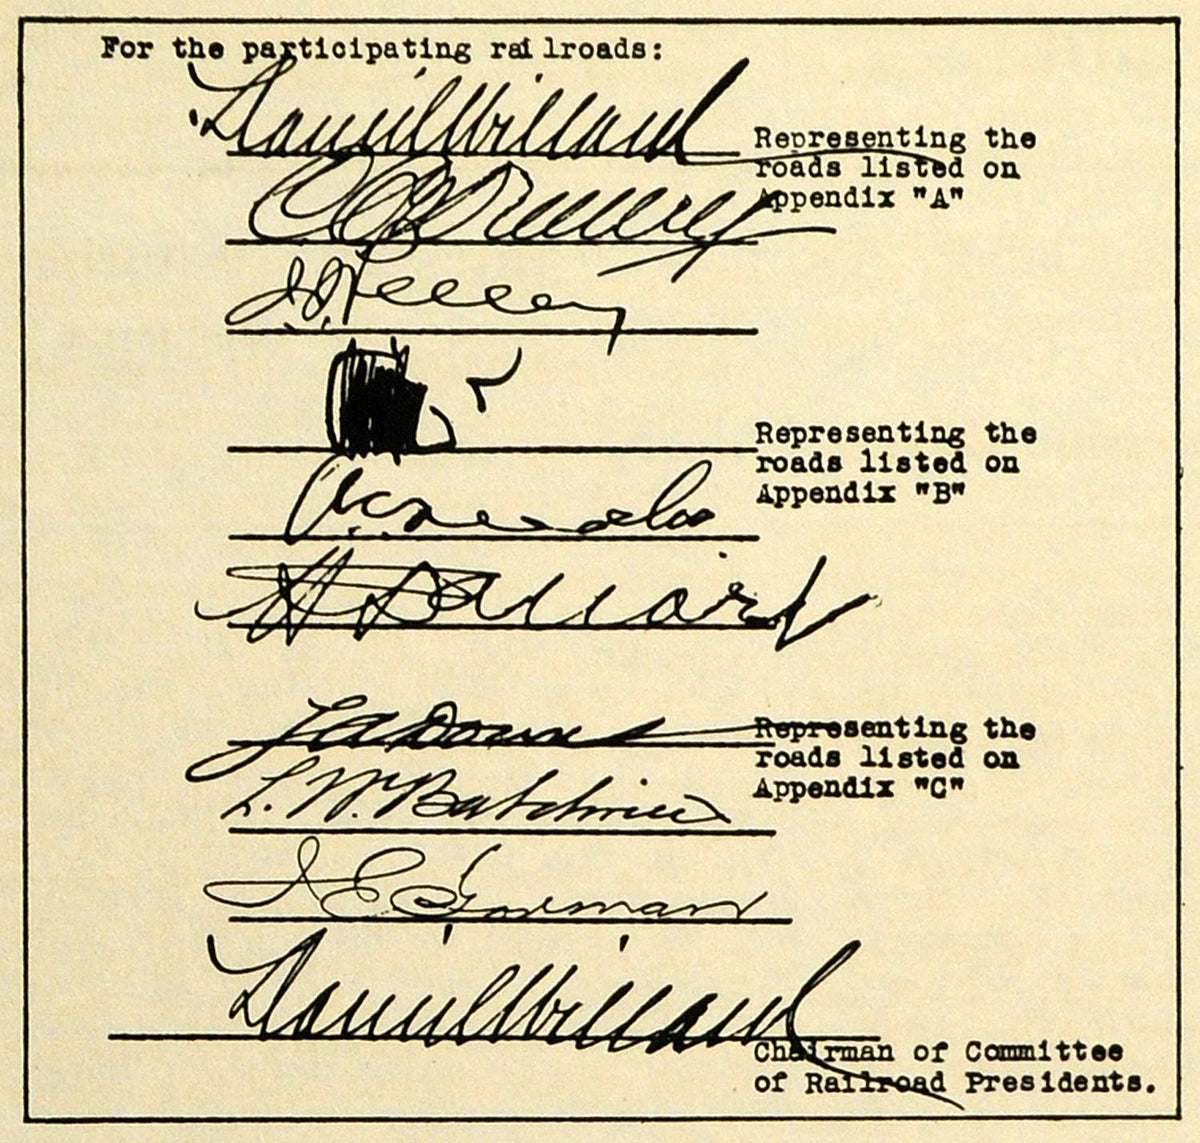 For the participating railroads:
Daniel Willard
Representing the
roads listed on
Appendix "A"
J.J. Pelley
Representing the
roads listed on
Appendix "B"
H A Scandrett
L A Downs
Representing the
roads listed on
Appendix "C"
L. W. Baldwin
J E Gorman
Daniel Willard
Chairman of Committee
of Railroad Presidents.